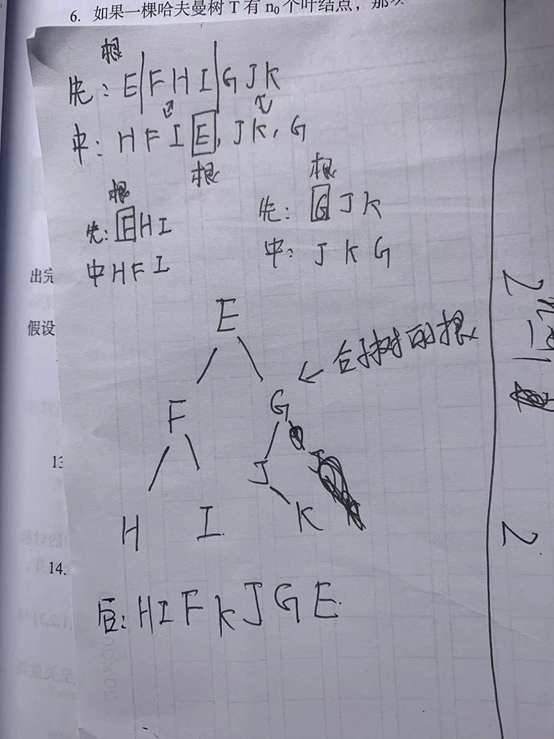 6. 如果一棵哈夫曼树 T 有 n₀ 个叶结点，那
根
先: E|F H I|G J K
中: H F I E, J K, G
根
根
先: F H I
中 H F I
根
先: G J K
中: J K G
出完
假设
E
← 右子树的根
F G
J
H I K
13
14.
后: H I F K J G E
2